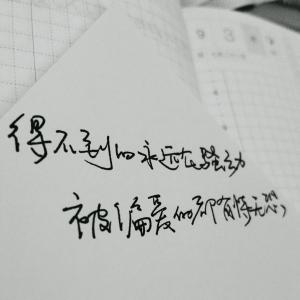 得不到的永远在骚动
被偏爱的都有恃无恐，
9 3